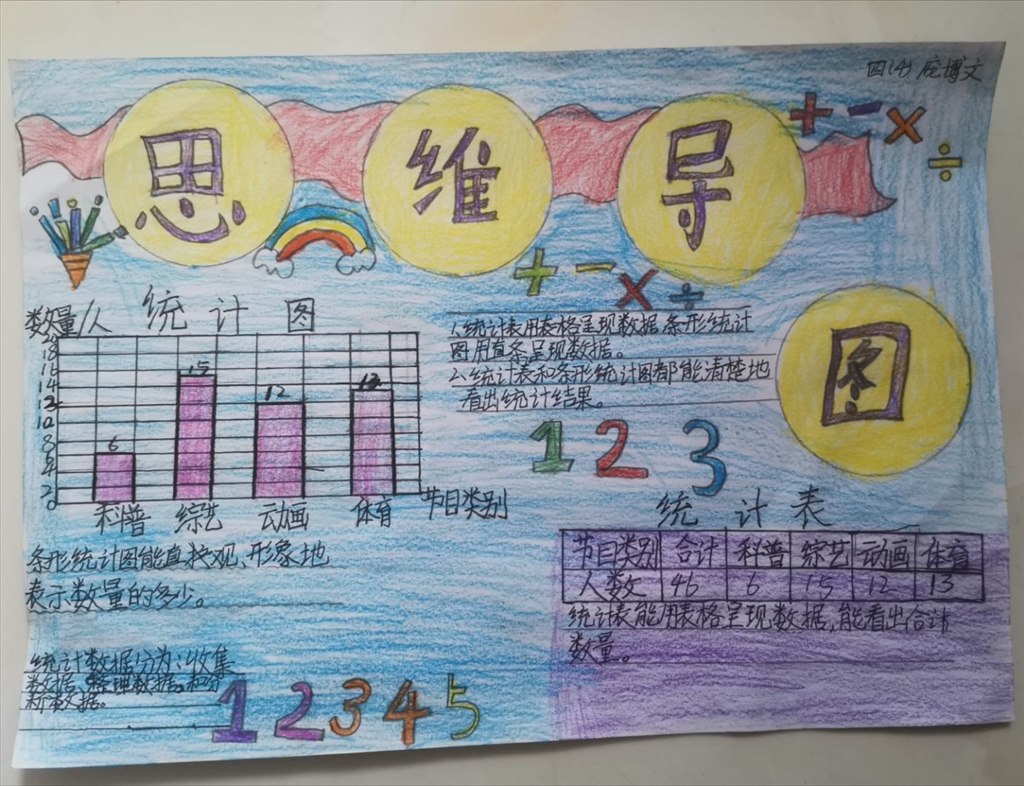 四(4) 应博文
思维导图
+ − × ÷
+ − × ÷
统计图
数量/人
20
18
16
14
12
10
8
6
4
2
0
6 15 12 13
科普 综艺 动画 体育 节目类别
条形统计图能直接观、形象地
表示数量的多少。
统计数据分为:收集
数据、整理数据。和分
析数据。
1 2 3 4 5
1.统计表用表格呈现数据,条形统计
图用直条呈现数据。
2.统计表和条形统计图都能清楚地
看出统计结果。
1 2 3
统计表
节目类别 合计 科普 综艺 动画 体育
人数 46 6 15 12 13
统计表能用表格呈现数据,能看出合计
数量。